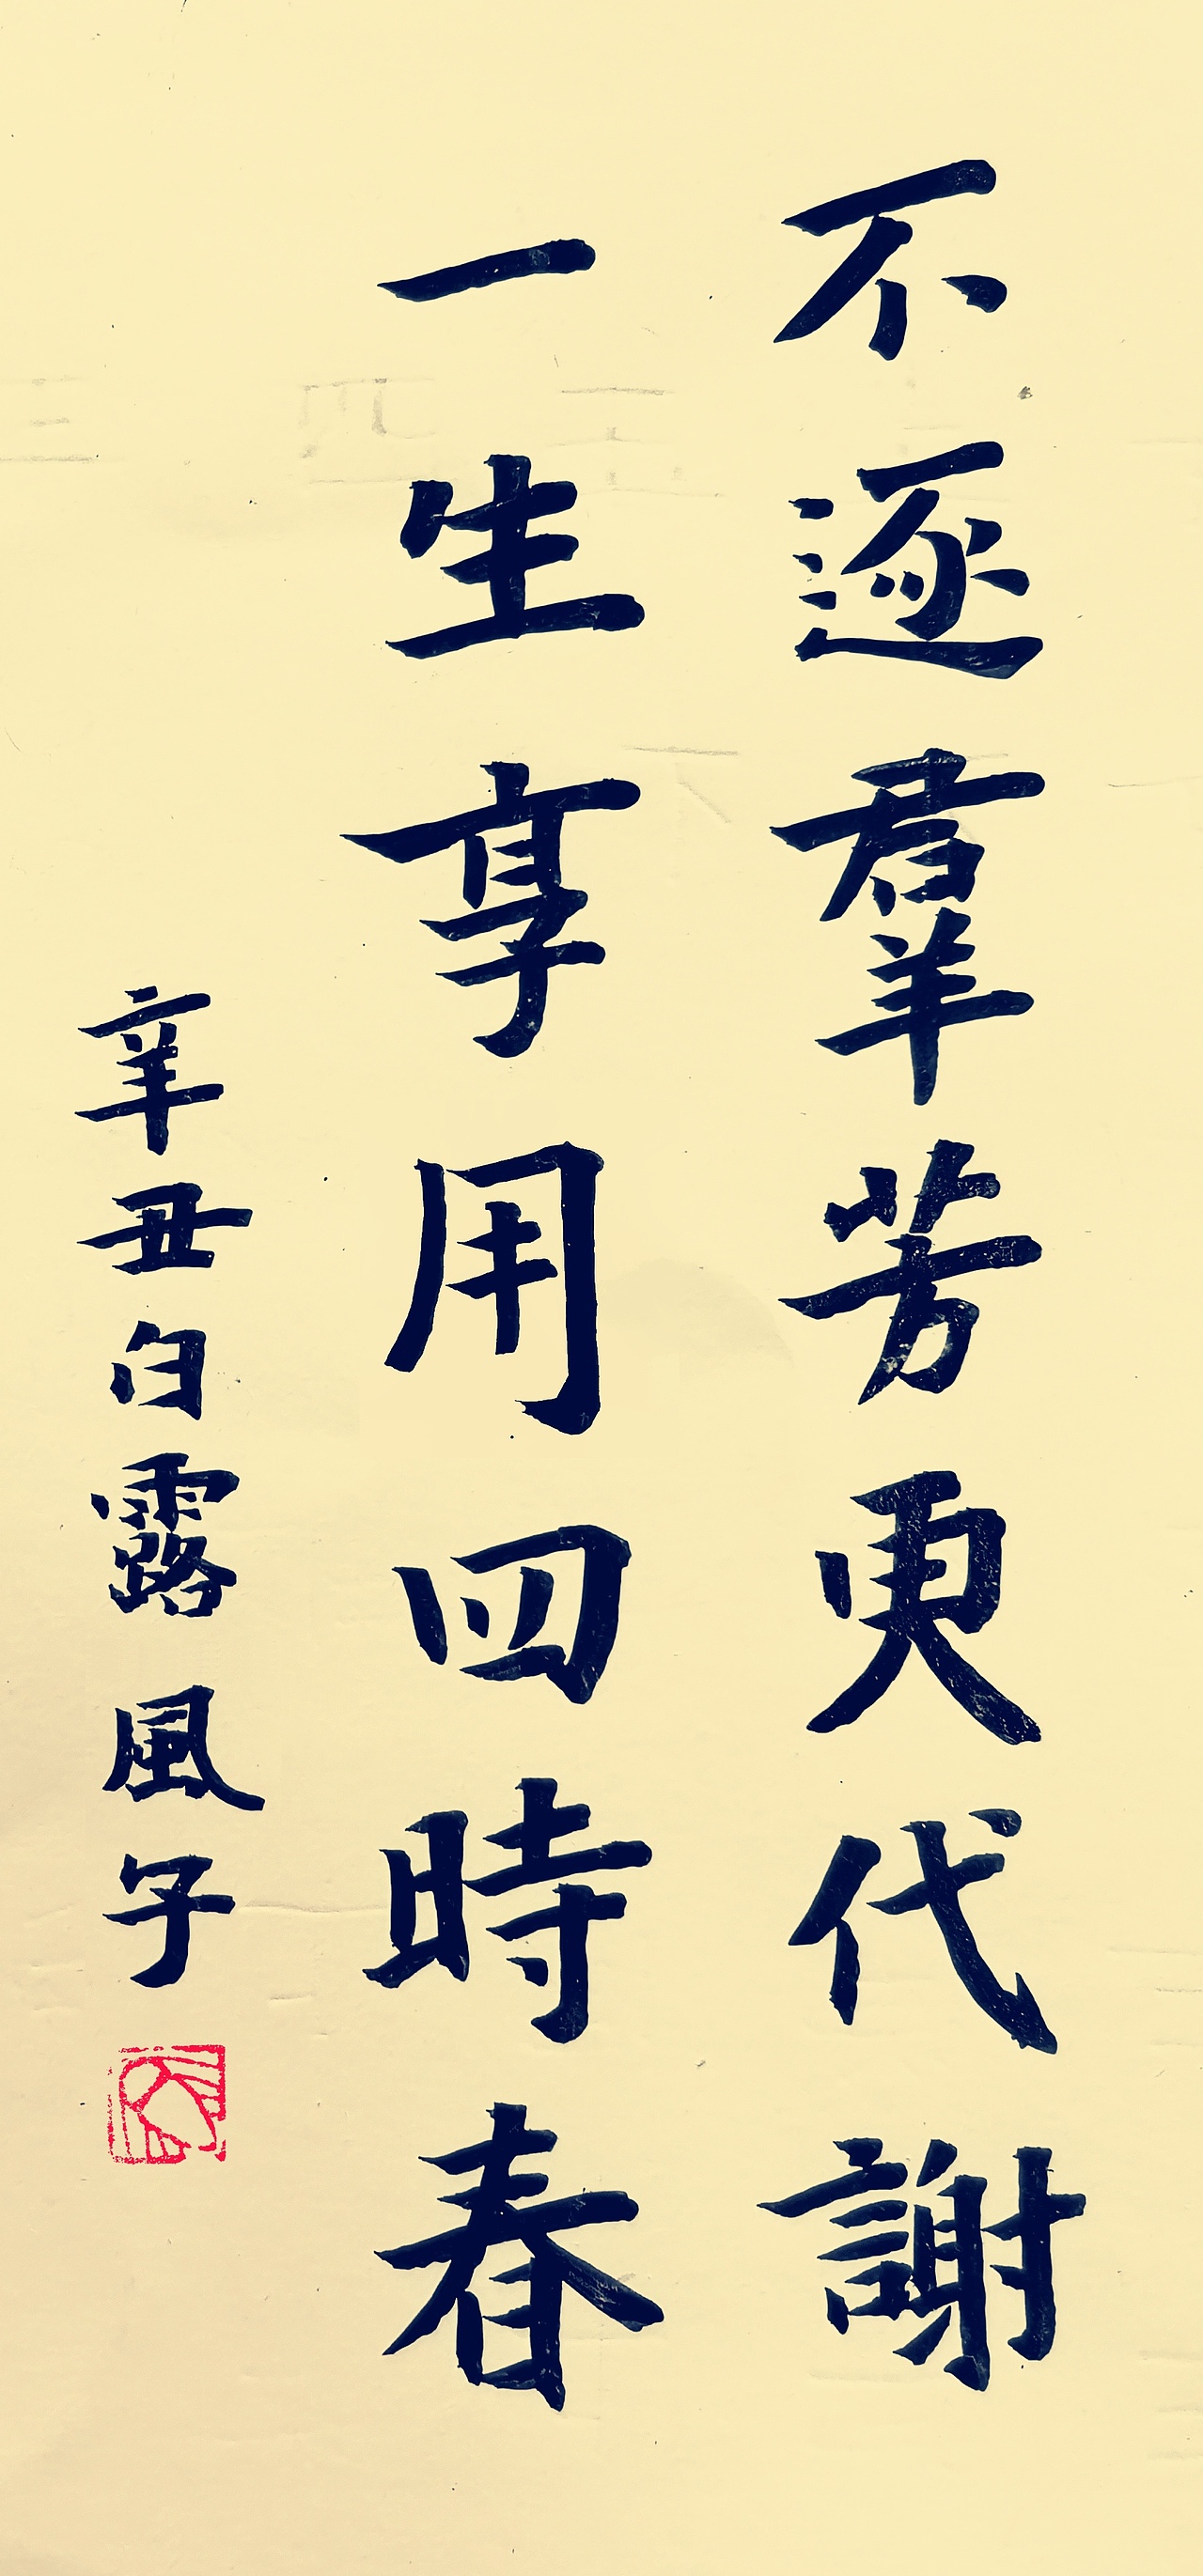 不逐羣芳更代謝
一生享用四時春
辛丑白露風子